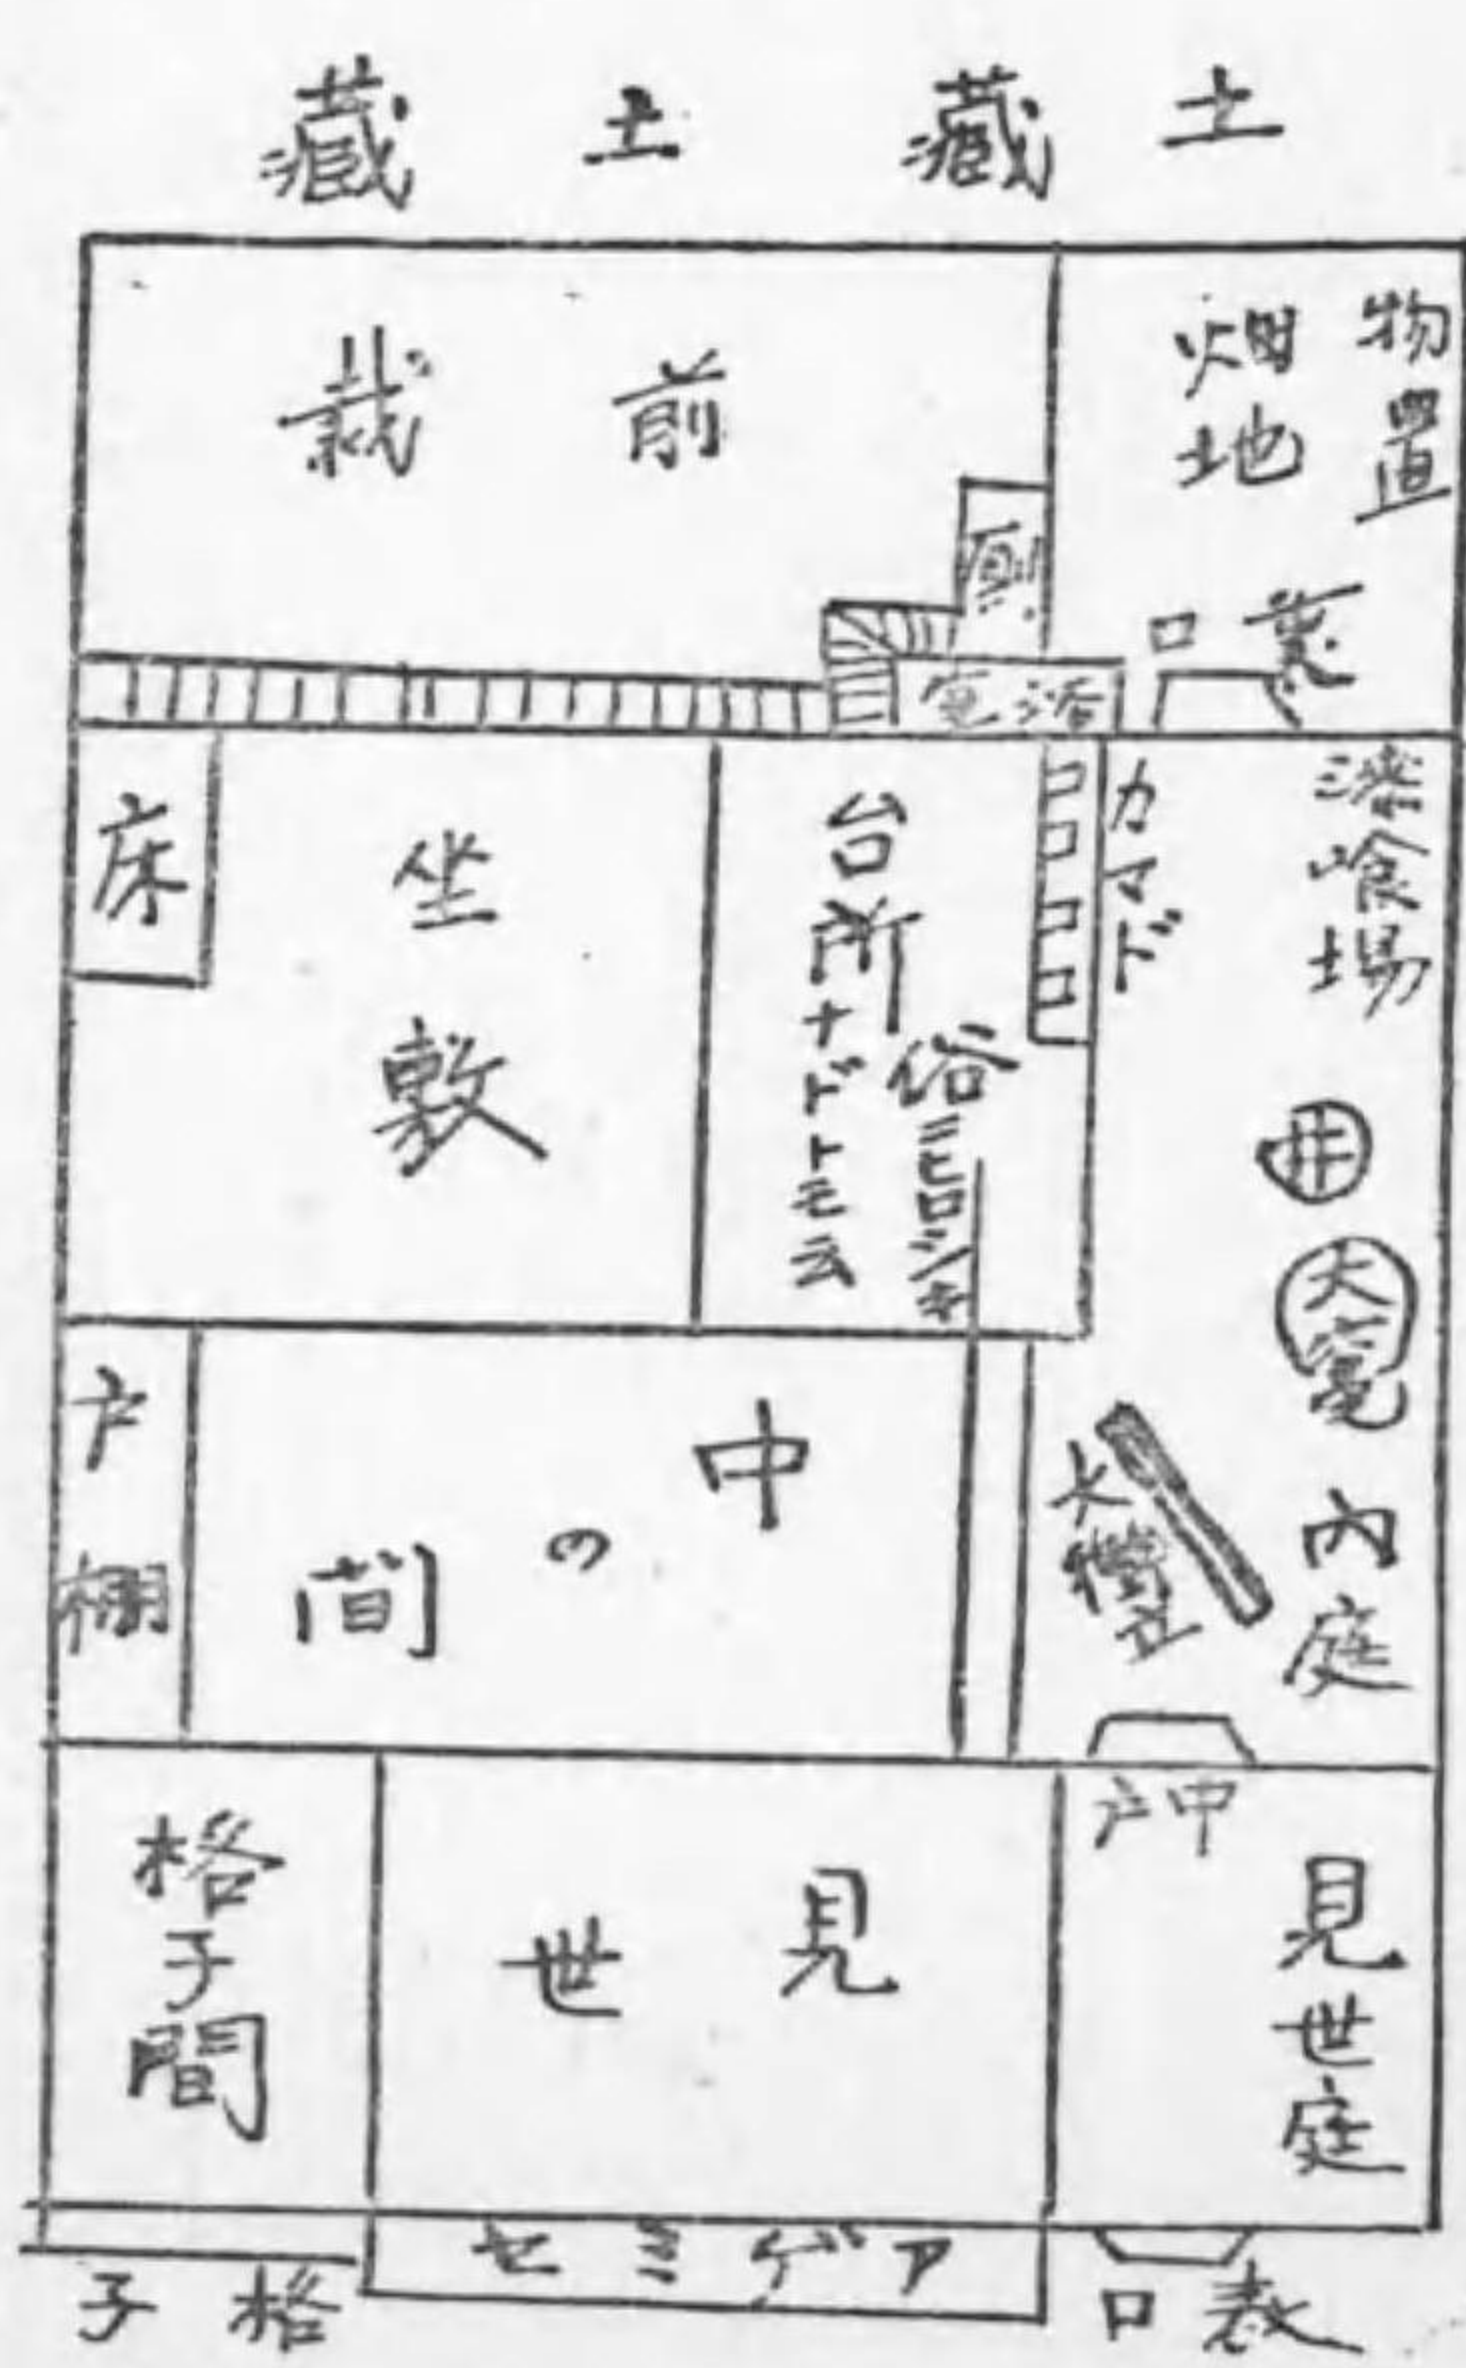 土藏
土藏
物置
畑地
前栽
厠
裏口
浴室
漆喰場
カマド
台所ナドトモ云
俗ニヒロシキ
坐敷
床
井
大竃
内庭
大衝立
中の間
戸棚
中戸
見世庭
見世
格子間
アゲミセ
表口
格子